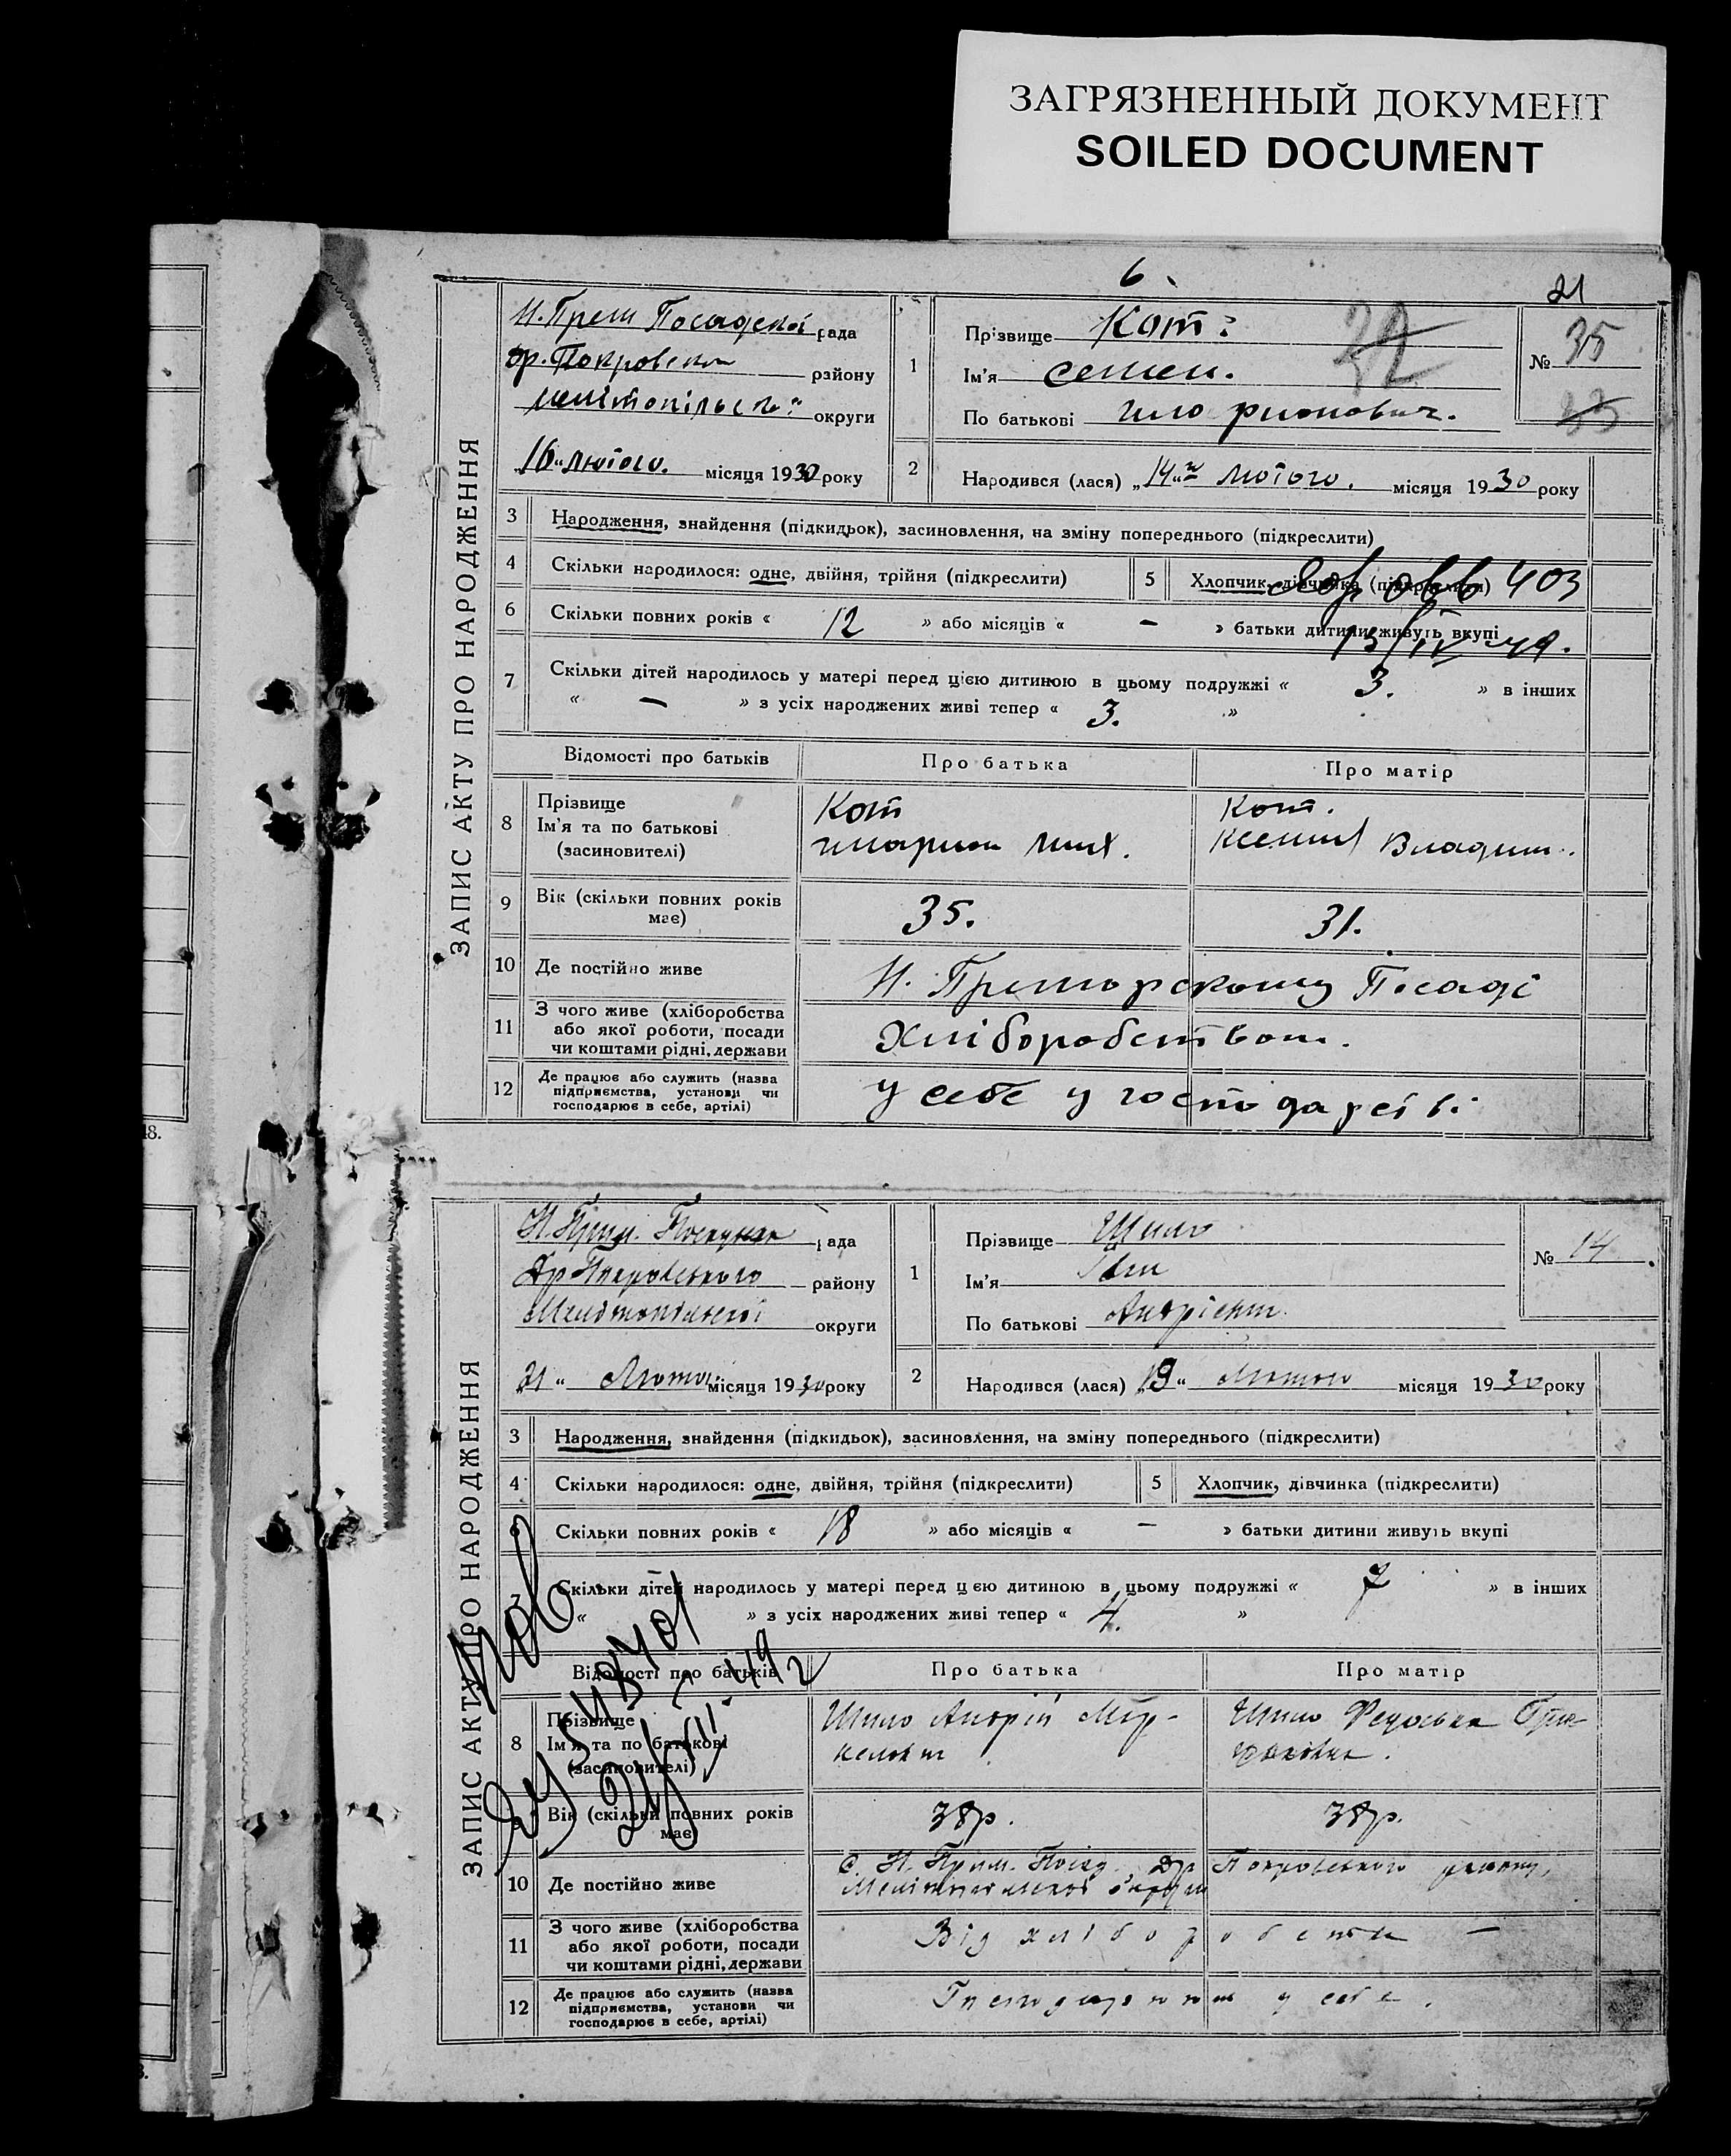 ЗАГРЯЗНЕННЫЙ ДОКУМЕНТ
SOILED DOCUMENT
6.
21
ЗАПИС АКТУ ПРО НАРОДЖЕННЯ
Н. Прим Посадської рада
др. Покровськ району
мелітопільсь округи
„16“ лютого. місяця 1930 року
1
Прізвище Кот.
Ім'я Семен.
По батькові
32
№ 35
33
2
Народився (лася) „14“ лютого. місяця 1930 року
3 Народження, знайдення (підкидьок), засиновлення, на зміну попереднього (підкреслити)
4 Скільки народилося: одне, двійня, трійня (підкреслити)
5 Хлопчик, дівчинка (підкреслити)
403
6 Скільки повних років « 12 » або місяців « – » батьки дитини живуть вкупі
13/IV 49.
7 Скільки дітей народилось у матері перед цією дитиною в цьому подружжі « 3. » в інших
« – » з усіх народжених живі тепер « 3. »
Відомості про батьків Про батька Про матір
8 Прізвище
Ім'я та по батькові
(засиновителі)
Кот
Мих.
Кот.
Ксения Владим.
9 Вік (скільки повних років
має)
35. 31.
10 Де постійно живе
Н. Приморскому Посаді
11 З чого живе (хліборобства
або якої роботи, посади
чи коштами рідні, держави
Хліборобством.
12 Де працює або служить (назва
підприємства, установи чи
господарює в себе, артілі)
у себе у господарстві
ЗАПИС АКТУ ПРО НАРОДЖЕННЯ
Н. Прим. рада
Др Покровського району
Мелітопільської округи
„21“ Лютого місяця 1930 року
1
Прізвище Шило
Ім'я Іван
По батькові Андрієвич
№ 14
2
Народився (лася) „19“ Лютого місяця 1930 року
3 Народження, знайдення (підкидьок), засиновлення, на зміну попереднього (підкреслити)
4 Скільки народилося: одне, двійня, трійня (підкреслити)
5 Хлопчик, дівчинка (підкреслити)
6 Скільки повних років « 18 » або місяців « – » батьки дитини живуть вкупі
7 Скільки дітей народилось у матері перед цією дитиною в цьому подружжі « 7 » в інших
« » з усіх народжених живі тепер « 4. »
Відомості про батьків Про батька Про матір
8 Прізвище
Ім'я та по батькові
(засиновителі)
Шило Андрій
Шило Федоська
9 Вік (скільки повних років
має)
38р. 38р.
10 Де постійно живе
с. Н. Прим. Посад. Др Покровського району,
Мелітопільської округи
11 З чого живе (хліборобства
або якої роботи, посади
чи коштами рідні, держави
Від хліборобства –
12 Де працює або служить (назва
підприємства, установи чи
господарює в себе, артілі)
Господарюють у себе.